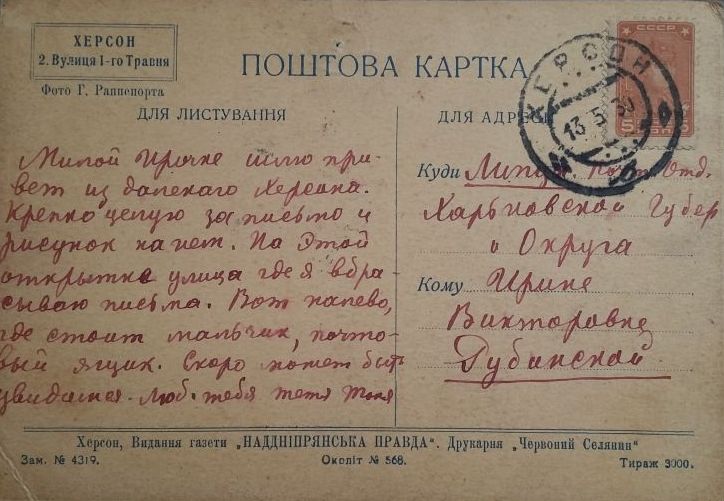 ХЕРСОН
2. Вулиця 1-го Травня
Фото Г. Раппепорта
ПОШТОВА КАРТКА
ДЛЯ ЛИСТУВАННЯ
Милой Ирочке шлю при-
вет из далекаго Херсона.
Крепко целую за письмо и
рисунок на нем. На этой
открытке улица где я вбра-
сываю письма. Вот налево,
где стоит мальчик, почто-
вый ящик. Скоро может быть
увидимся. Люб. тебя тетя Тоня
ДЛЯ АДРЕС
Куди Липцы почт. Отд.
Харьковской Губер
и Округа
Кому Ирине
Викторовне
Дубинской
СССР
5 КОП. 5
ХЕРСОН
13 5 30
Херсон, Видання газети „НАДДНІПРЯНСЬКА ПРАВДА". Друкарня „Червоний Селянин"
Зам. № 4319. Околіт № 568. Тираж 3000.